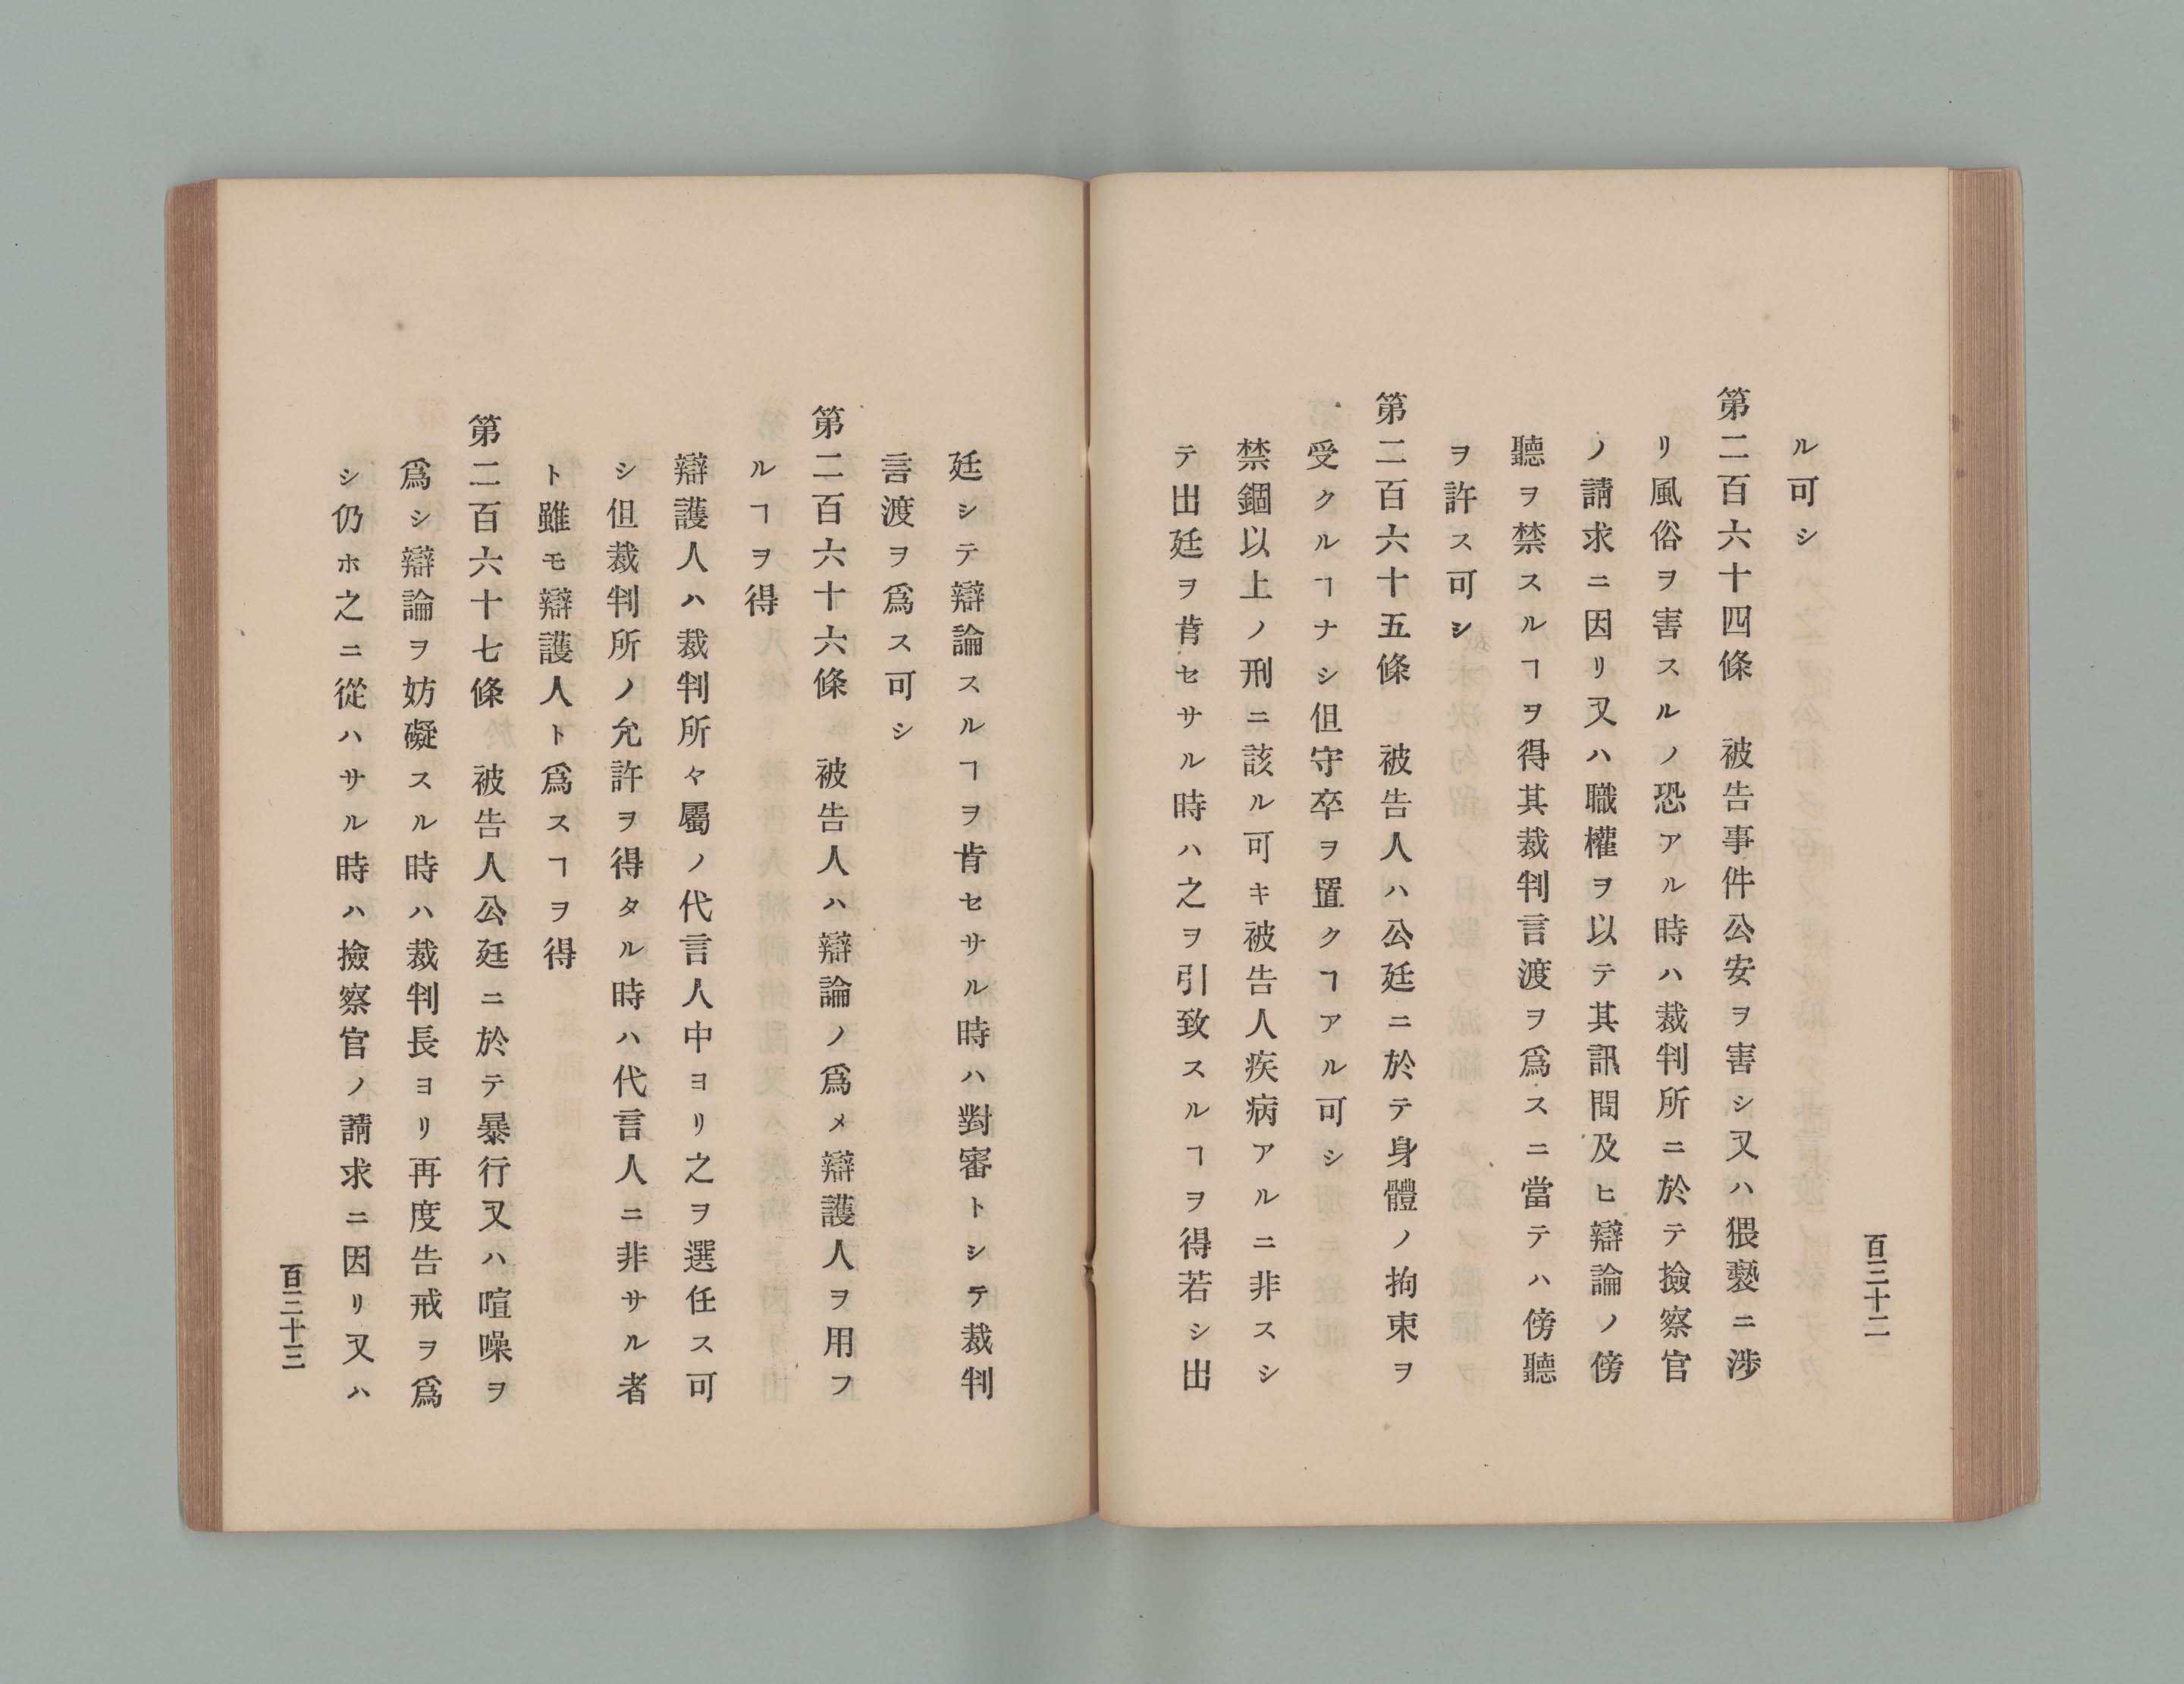 百三十二
ル可シ
第二百六十四條　被告事件公安ヲ害シ又ハ猥褻ニ渉
リ風俗ヲ害スルノ恐アル時ハ裁判所ニ於テ撿察官
ノ請求ニ因リ又ハ職權ヲ以テ其訊問及ヒ辯論ノ傍
聽ヲ禁スルヿヲ得其裁判言渡ヲ爲スニ當テハ傍聽
ヲ許ス可シ
第二百六十五條　被告人ハ公廷ニ於テ身體ノ拘束ヲ
受クルヿナシ但守卒ヲ置クヿアル可シ
禁錮以上ノ刑ニ該ル可キ被告人疾病アルニ非スシ
テ出廷ヲ肯セサル時ハ之ヲ引致スルヿヲ得若シ出
廷シテ辯論スルヿヲ肯セサル時ハ對審トシテ裁判
言渡ヲ爲ス可シ
第二百六十六條　被告人ハ辯論ノ爲メ辯護人ヲ用フ
ルヿヲ得
辯護人ハ裁判所々屬ノ代言人中ヨリ之ヲ選任ス可
シ但裁判所ノ允許ヲ得タル時ハ代言人ニ非サル者
ト雖モ辯護人ト爲スヿヲ得
第二百六十七條　被告人公廷ニ於テ暴行又ハ喧噪ヲ
爲シ辯論ヲ妨礙スル時ハ裁判長ヨリ再度告戒ヲ爲
シ仍ホ之ニ從ハサル時ハ撿察官ノ請求ニ因リ又ハ
百三十三